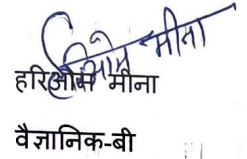 हरिओम मीना
हरिओम मीना
वैज्ञानिक-बी